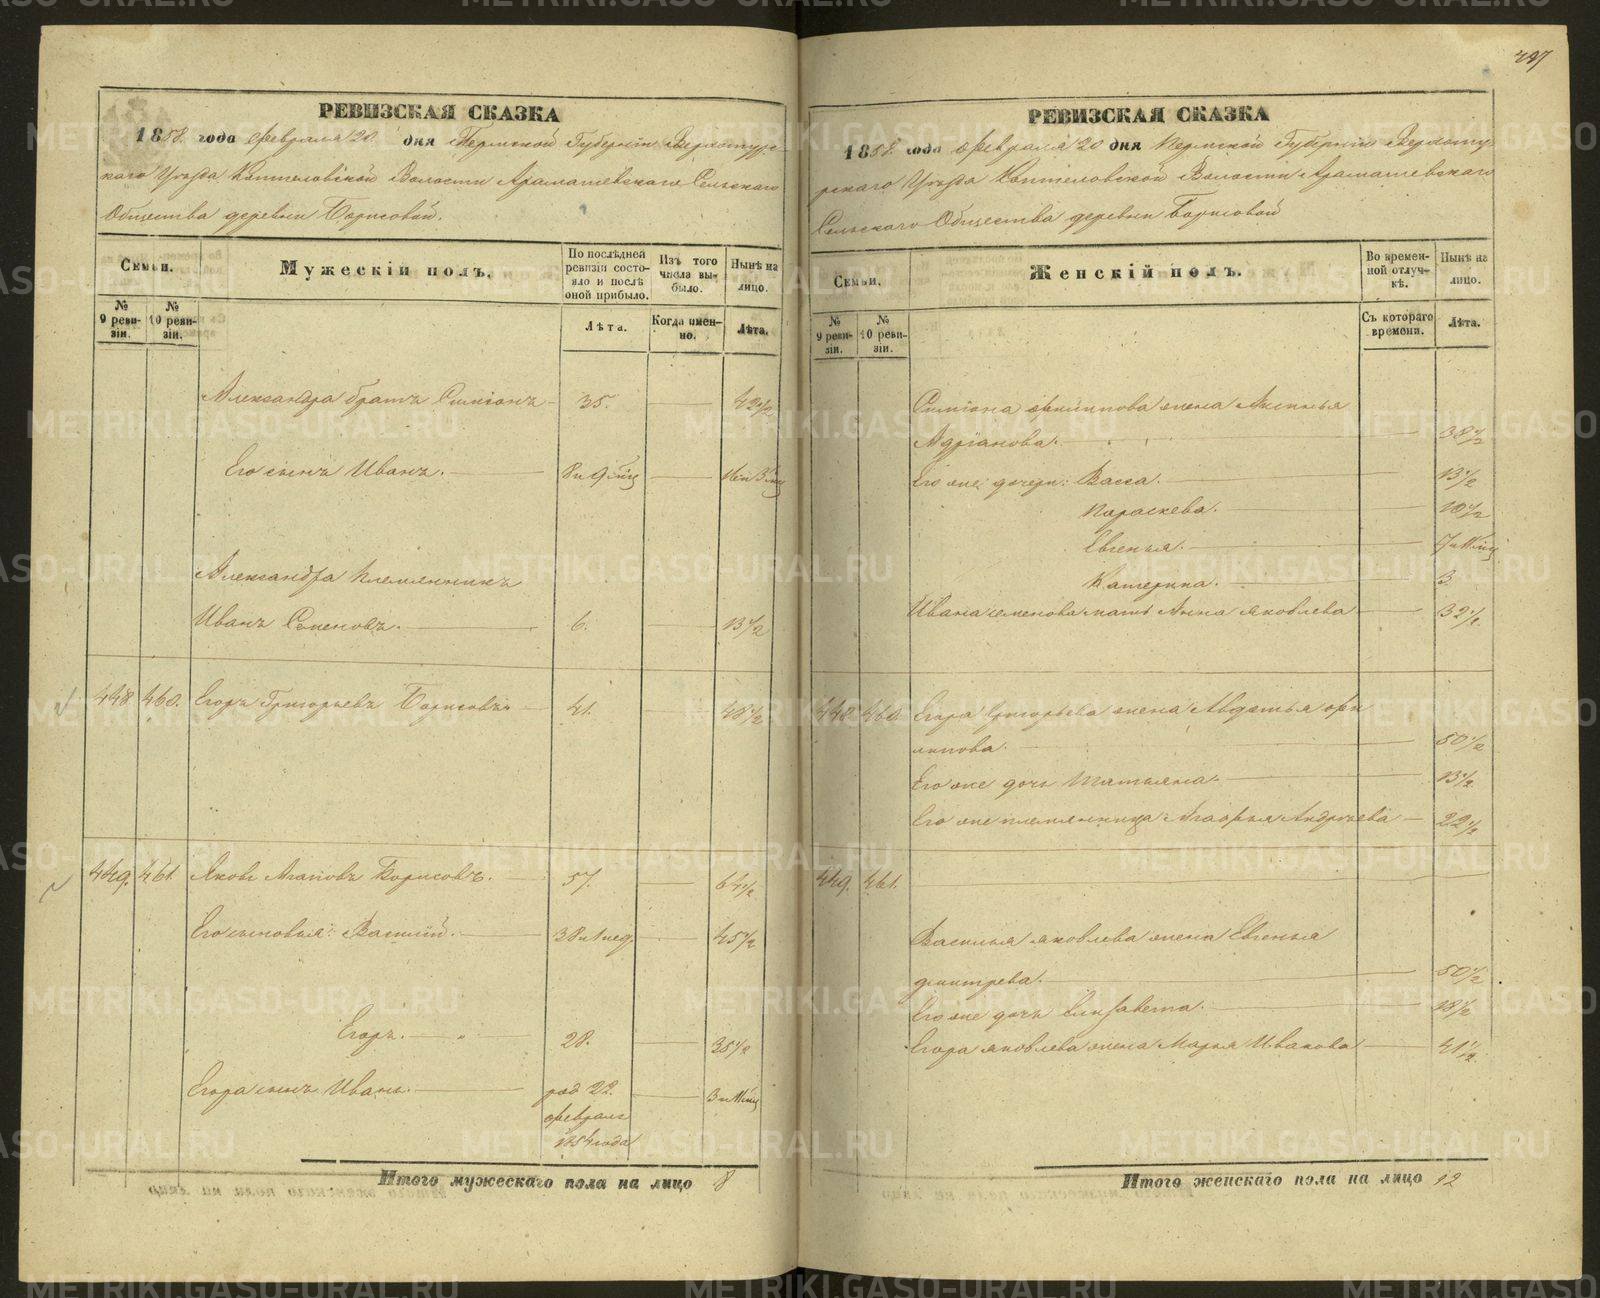 РЕВИЗСКАЯ СКАЗКА
1858 года февраля 20 дня Пермской Губернии Верхотурс
каго Уѣзда Коптеловской Волости Арамашевскаго Сельскаго
Общества деревни Борисовой.
Семьи.
Мужескій полъ.
По послѣдней ревизіи состояло и послѣ оной прибыло.
Изъ того числа выбыло.
Нынѣ на лицо.
№ 9 ревизіи.
№ 10 ревизіи.
Лѣта.
Когда именно.
Лѣта.
Александра братъ Симіонъ 35. 42 1/2
Его сынъ Иванъ. 8 и 9 мцъ 16 и 3 мц
Александра племянникъ
Иванъ Семеновъ. 6. 13 1/2
448 460. Егоръ Григорьевъ Борисовъ 41. 48 1/2
449. 461. Яковъ Агаповъ Борисовъ. 57. 64 1/2
Его сыновья: Василій. 38 и 1 нед. 45 1/2
Егоръ. 28. 35 1/2
Егора сынъ Иванъ. род 22. 3 и 11 мц
февраля
1854 года
Итого мужескаго пола на лицо 8
427
РЕВИЗСКАЯ СКАЗКА
1858. года февраля 20 дня Пермской Губерніи Верхоту
рскаго Уѣзда Коптеловской Волости Арамашевскаго
Сельскаго Общества деревни Борисовой
Семьи.
Женскій полъ.
Во временной отлучкѣ.
Нынѣ на лицо.
№ 9 ревизіи.
№ 10 ревизіи.
Съ котораго времени.
Лѣта.
Симіона Филиппова жена Аксинья
Адріанова. 38 1/2
Его же дочери: Васса. 13 1/2
Параскева. 10 1/2
Евгенья. 7 и 11 мц
Катерина. 3
Ивана Семенова мать Анна Яковлева 32 1/2
448 460. Егора Григорьева жена Авдотья Фи
липова. 50 1/2
Его же дочь Татьяна. 13 1/2
Его же племянница Агафья Андреева 22 1/2
449. 461.
Василья Яковлева жена Евгенья
Дмитрева. 50 1/2
Его же дочь Елизавета. 18 1/2
Егора Яковлева жена Марья Иванова 41 1/2
Итого женскаго пола на лицо 12
METRIKI.GASO-URAL.RU